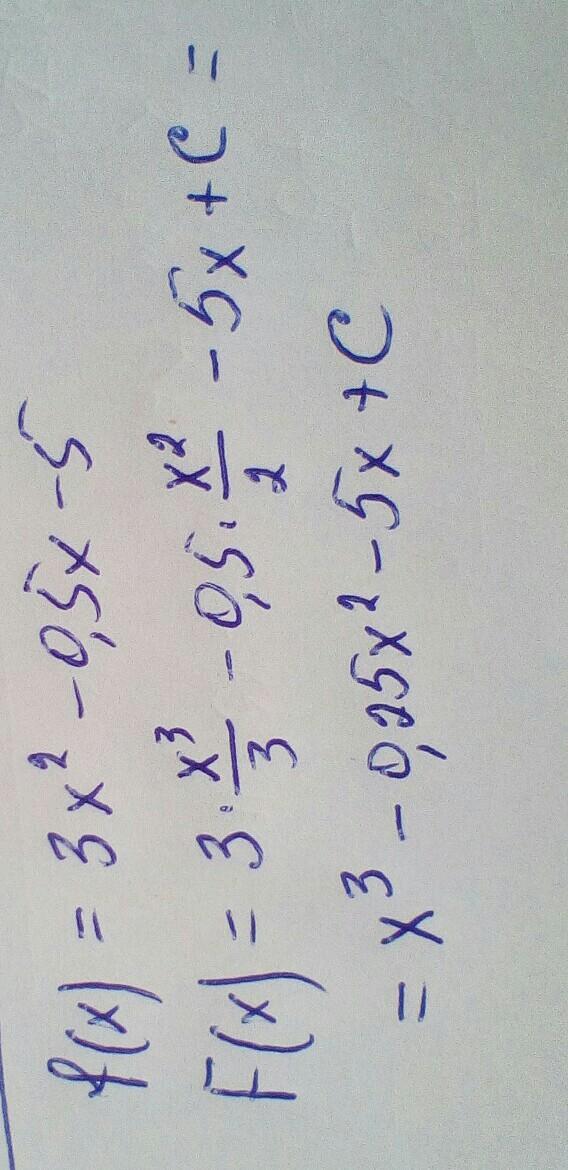 f(x) = 3x² - 0,5x - 5
F(x) = 3 · x³/3 - 0,5 · x²/2 - 5x + C =
= x³ - 0,25x² - 5x + C